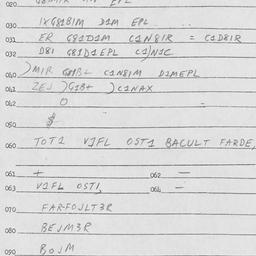 020
030 IXG81BIM DIM EPL
031 ER G81D1M C1N81R = C1D81R
032 D81 G81D1EPL C1)N1C
040 )MIR G81BL C1N81M D1MEPL
041 ZEJ )G1B+ )C1NAX
042 O =
050
060 TOT1 V1FL OST1 BACULT FARDE,
061 + 062 —
063 V1FL OST1, 064 —
070 FAR-FOJLT3R
080 BEJM3R
090 BOJM